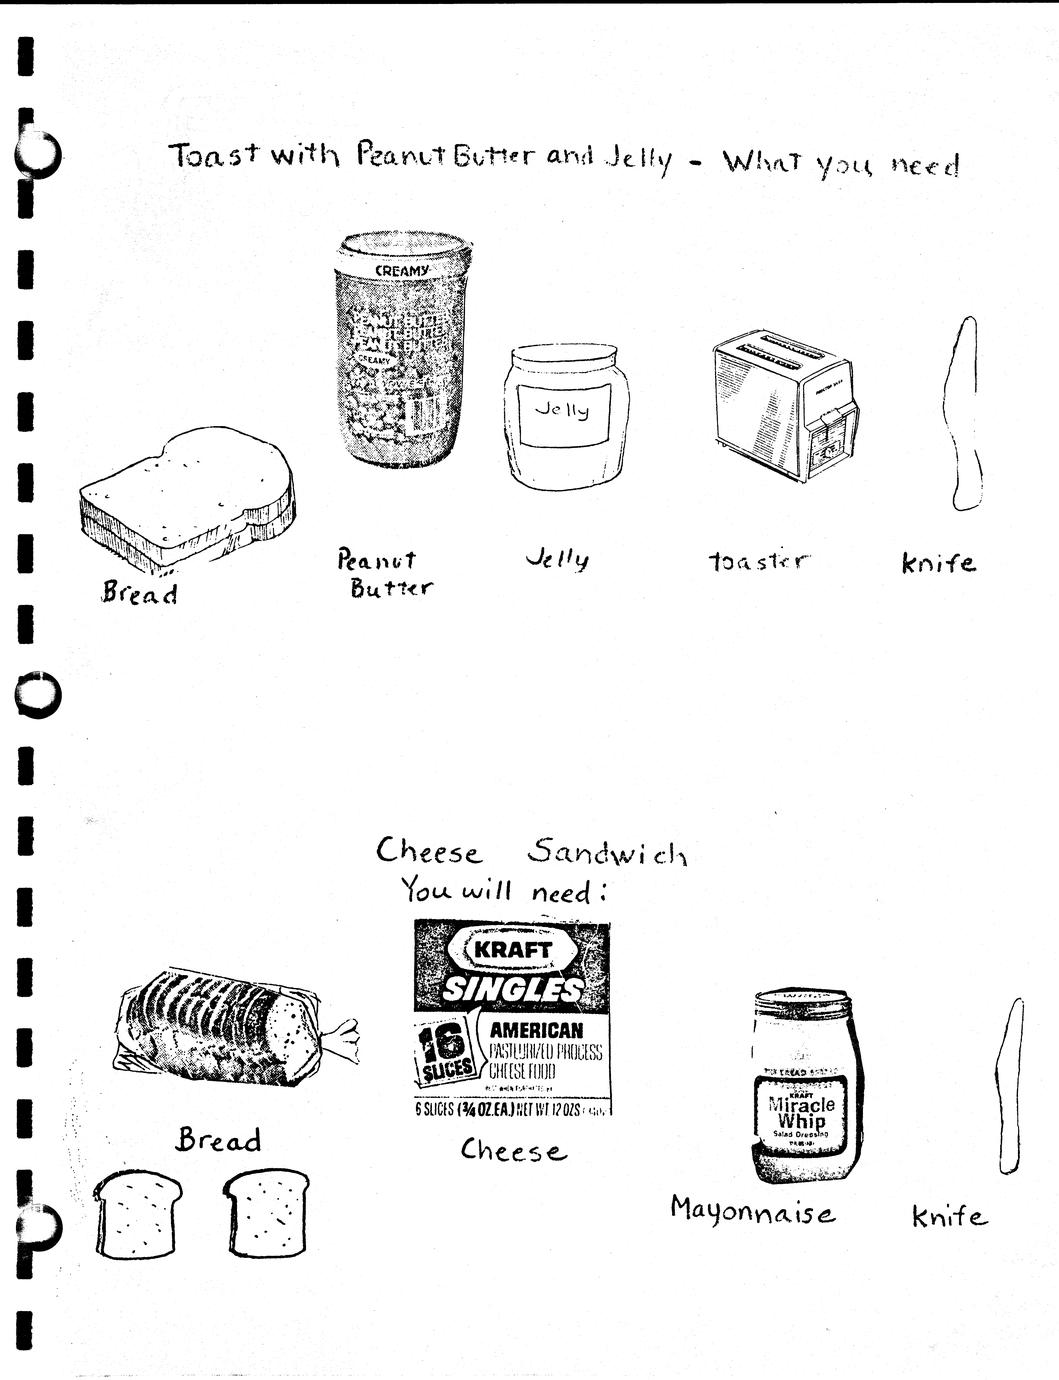 Toast with Peanut Butter and Jelly - What you need
CREAMY
PEANUT BUTTER
PEANUT BUTTER
PEANUT BUTTER
CREAMY
Jelly
Bread
Peanut
Butter
Jelly
toaster
knife
Cheese Sandwich
You will need:
KRAFT
SINGLES
16
SLICES
AMERICAN
PASTEURIZED PROCESS
CHEESE FOOD
6 SLICES (3/4 OZ. EA.) NET WT 12 OZS
KRAFT
Miracle
Whip
Salad Dressing
Bread
Cheese
Mayonnaise
Knife